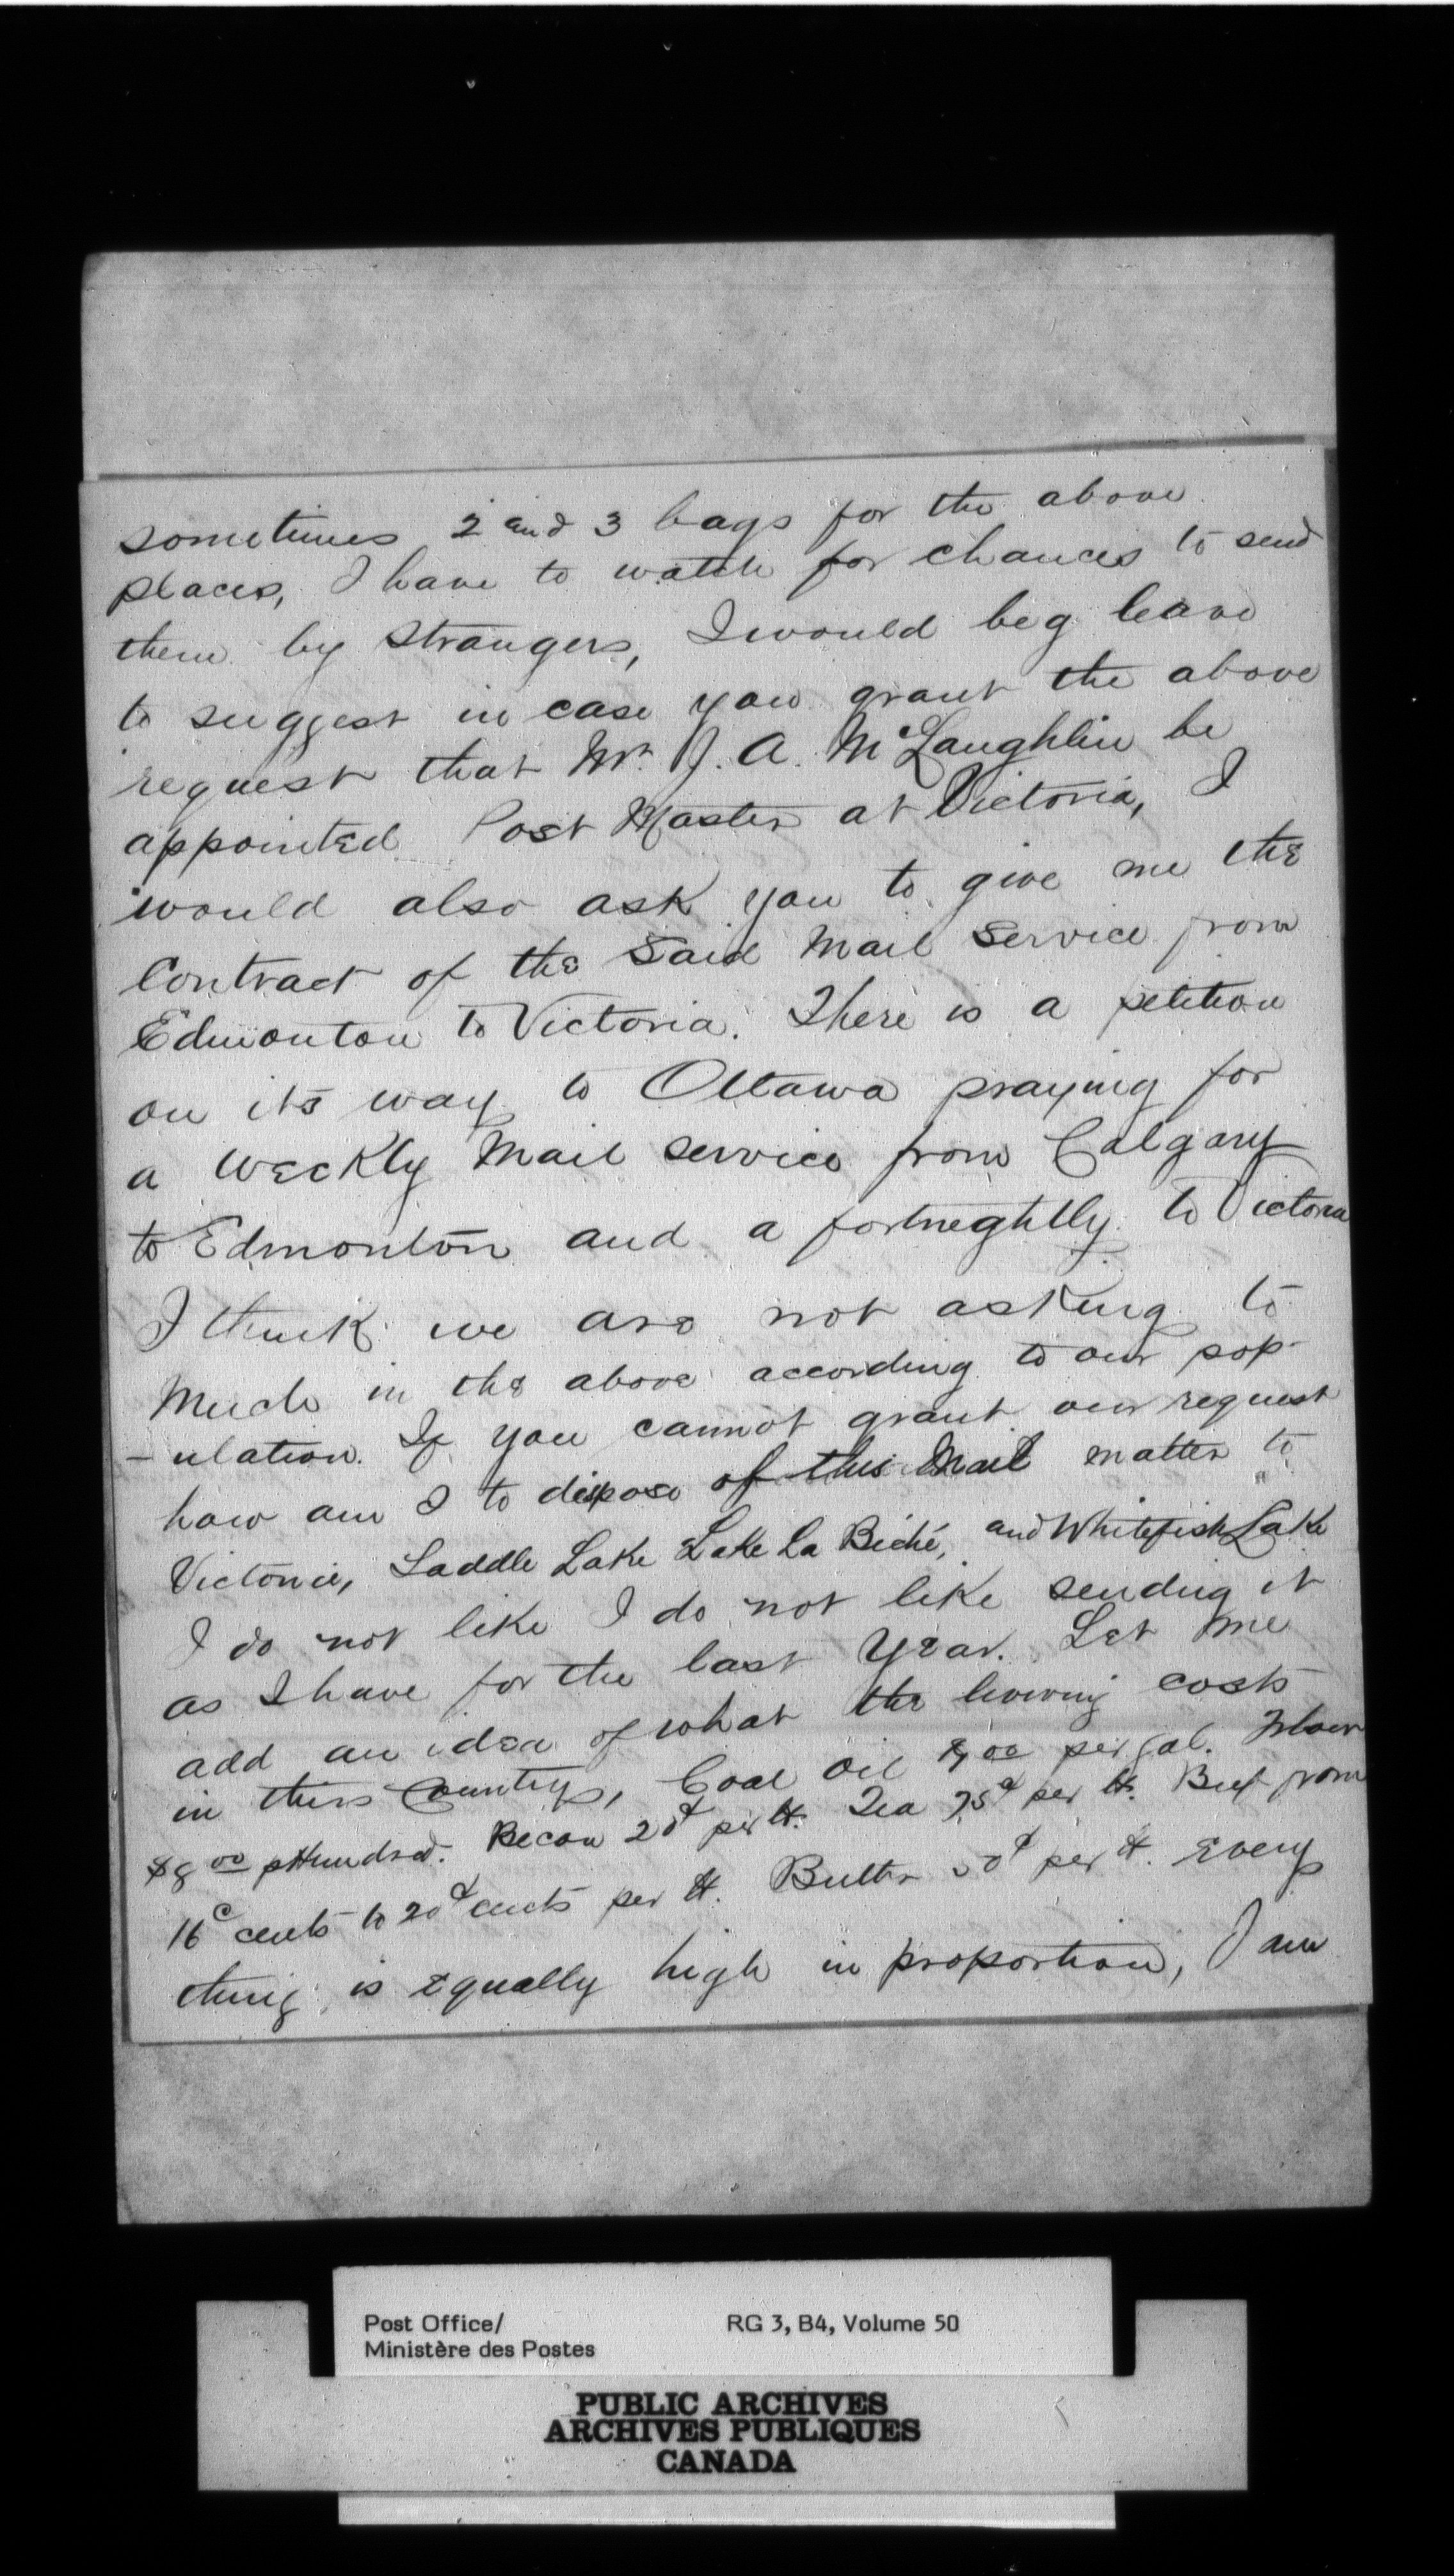 sometimes 2 and 3 bags for the above
places, I have to watch for chances to send
them by Strangers, I would beg leave
to suggest in case you grant the above
request that Mr. J. A. McLaughlin be
appointed Post Master at Victoria, I
would also ask you to give me the
Contract of the Said Mail Service from
Edmonton to Victoria. There is a petition
on its way to Ottawa praying for
a Weekly Mail service from Calgary
to Edmonton and a fortneghtly to Victoria
I think we are not asking to
Much in the above according to our pop-
-ulation. If you cannot grant our request
how am I to dispose of this Mail matter to
Victoria, Saddle Lake Lake La Biché, and Whitefish Lake
I do not like I do not like sending it
as I have for the last Year. Let me
add an idea of what the living costs
in this Country, Coal Oil per gal. Flour
$8 00 pHundred. Becon per lb. Tea 75 per lb. Beef from
16c cents to 20 cents per lb. Butter per lb. Every
thing is Equally high in proportion, I am
Post Office/ RG 3, B4, Volume 50
Ministère des Postes
PUBLIC ARCHIVES
ARCHIVES PUBLIQUES
CANADA